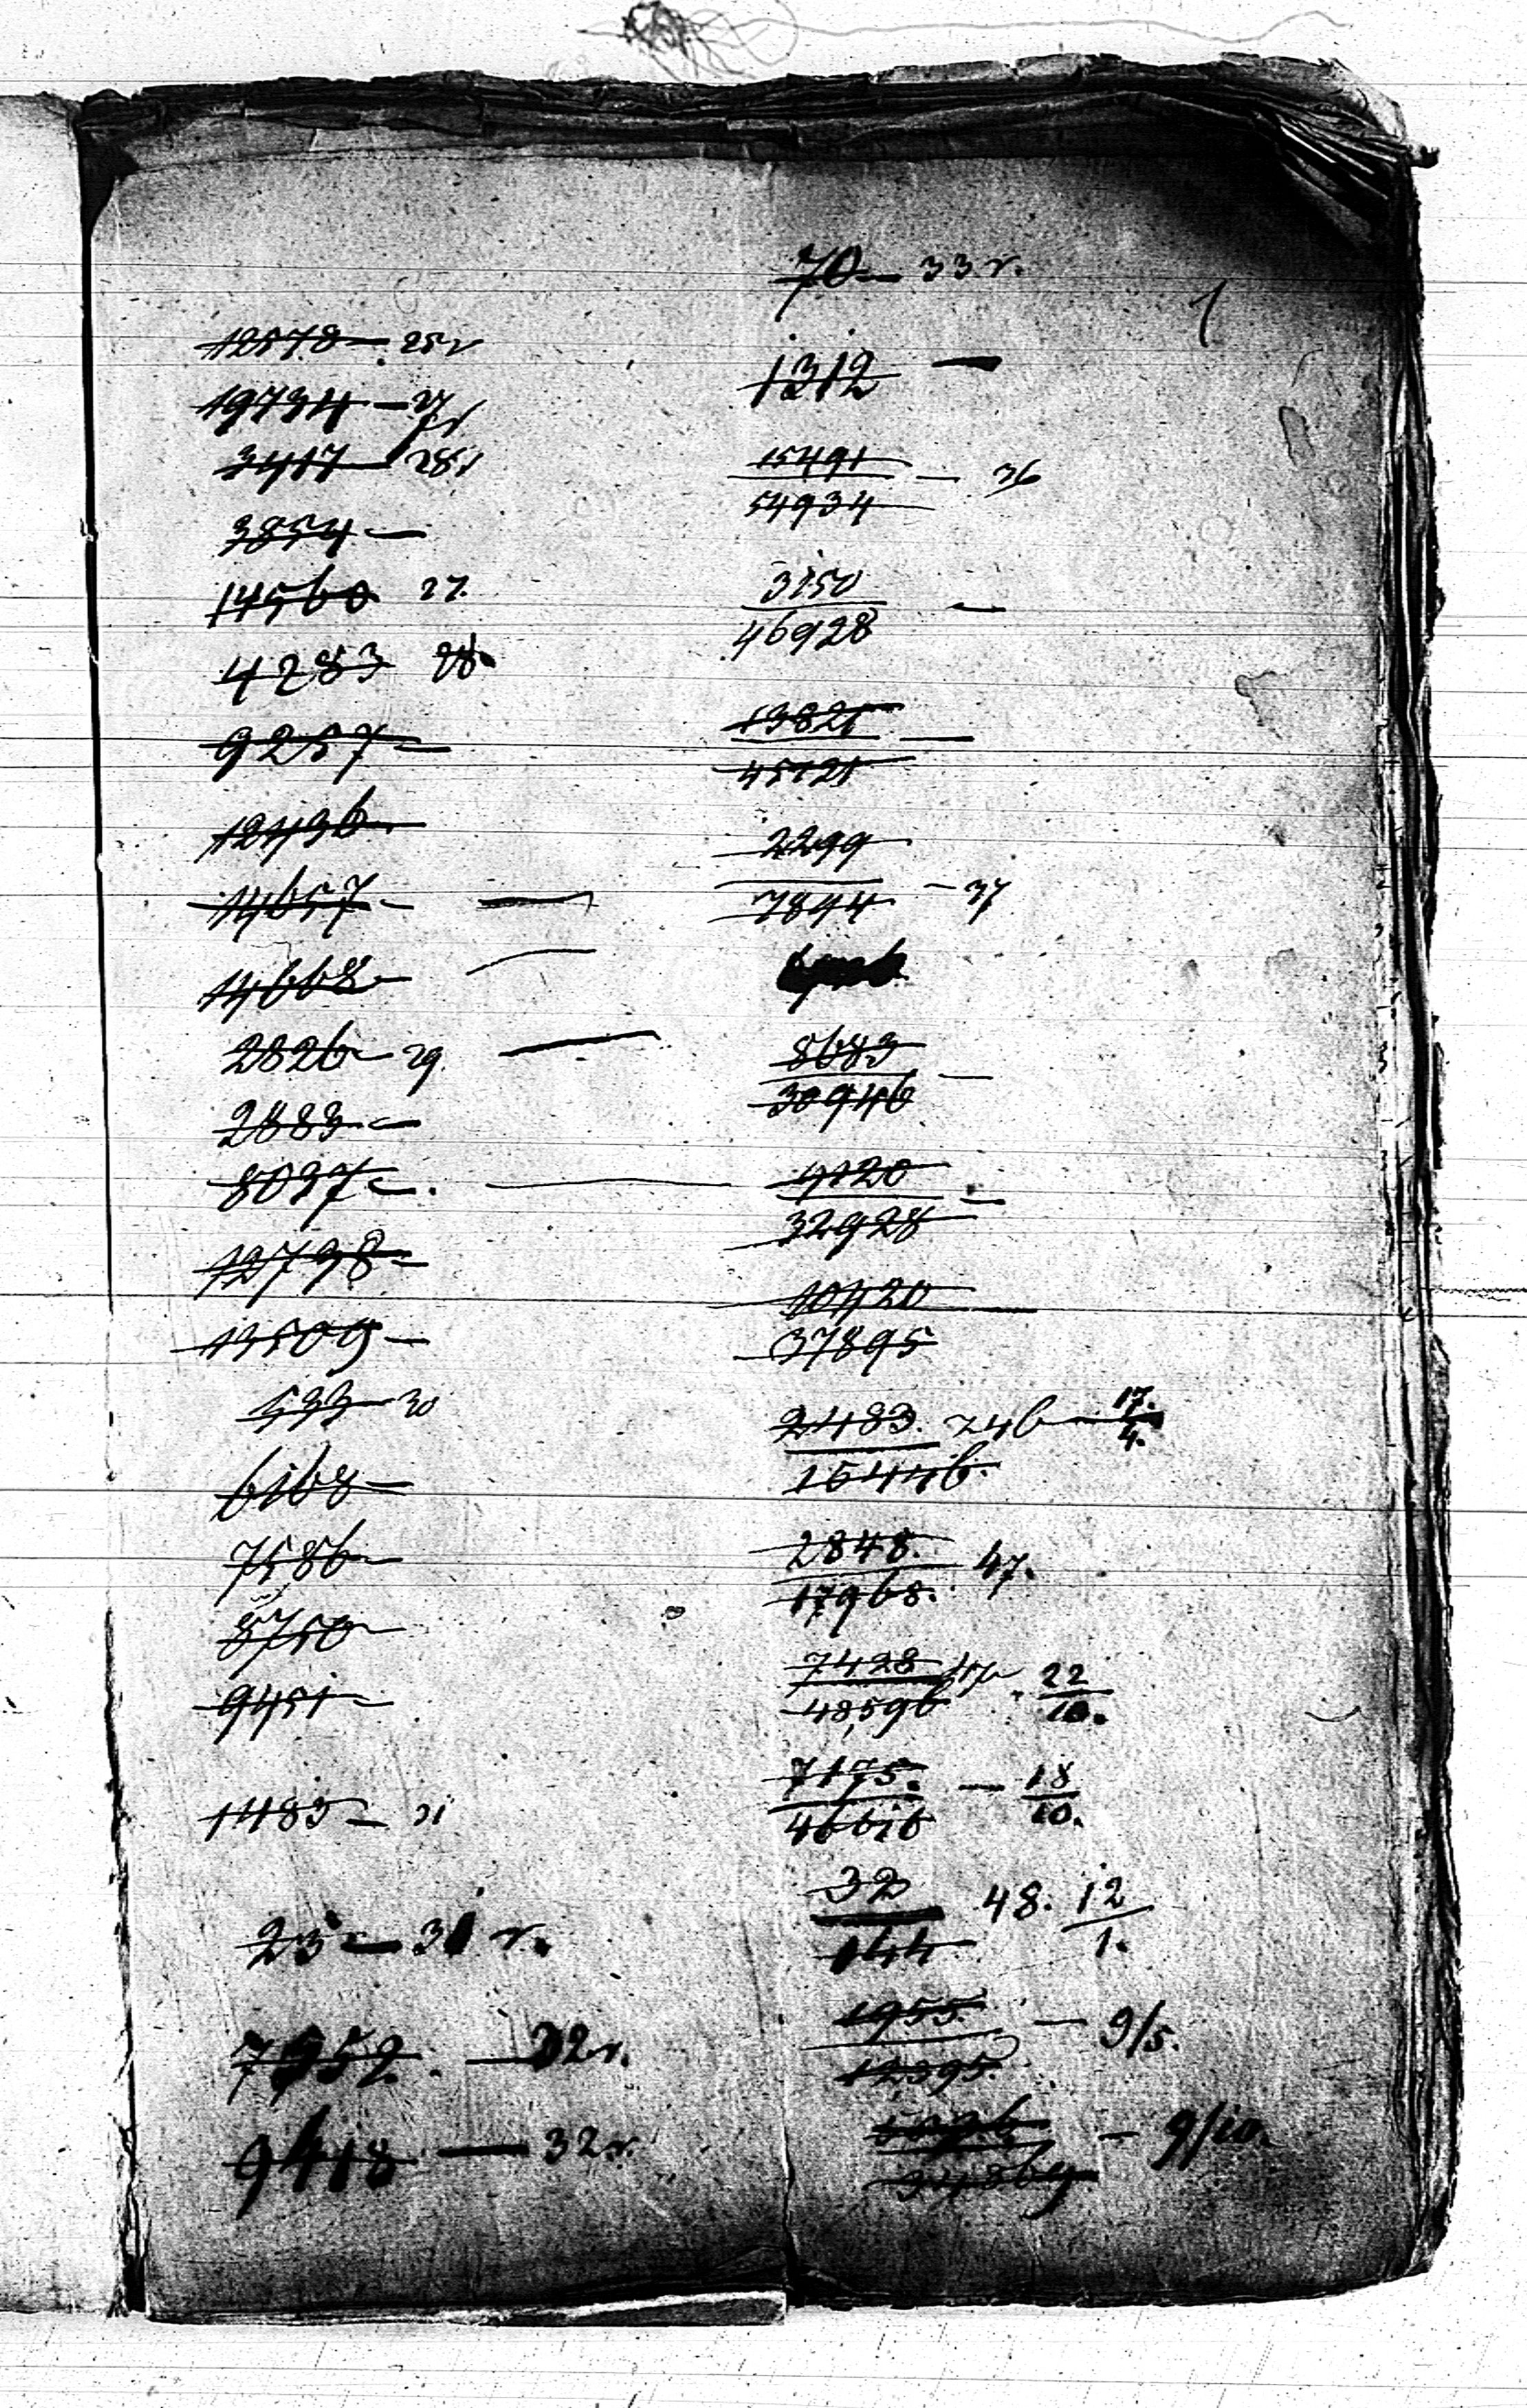 12578 — 25 г
19734 — 27
3417 — 28 г
3854 —
14560 27.
4283 28.
9257 —
12436
14657 —
14668 —
2826 — 29.
2883 —
8027 —.
12798 —
13509 —
533 — 30
6168 —
7586 —
8750 —
9451 —
1483 — 31
23 — 31 г.
— 32 г.
9418 — 32 г.
70 — 33 г.
1
1312 —
15491 — 36
54934
3150 —
46928
13821 —
45121
2299
7844 — 37
8683 —
30946
9120 —
32928
10420 —
37895
2483. 246 — 17.
4.
16446.
2848. 47.
17968.
7428 22
48596 10.
7175. — 18
46616 10.
32 48. 12
144 1.
1955. — 9/5.
12395.
— 9/10.